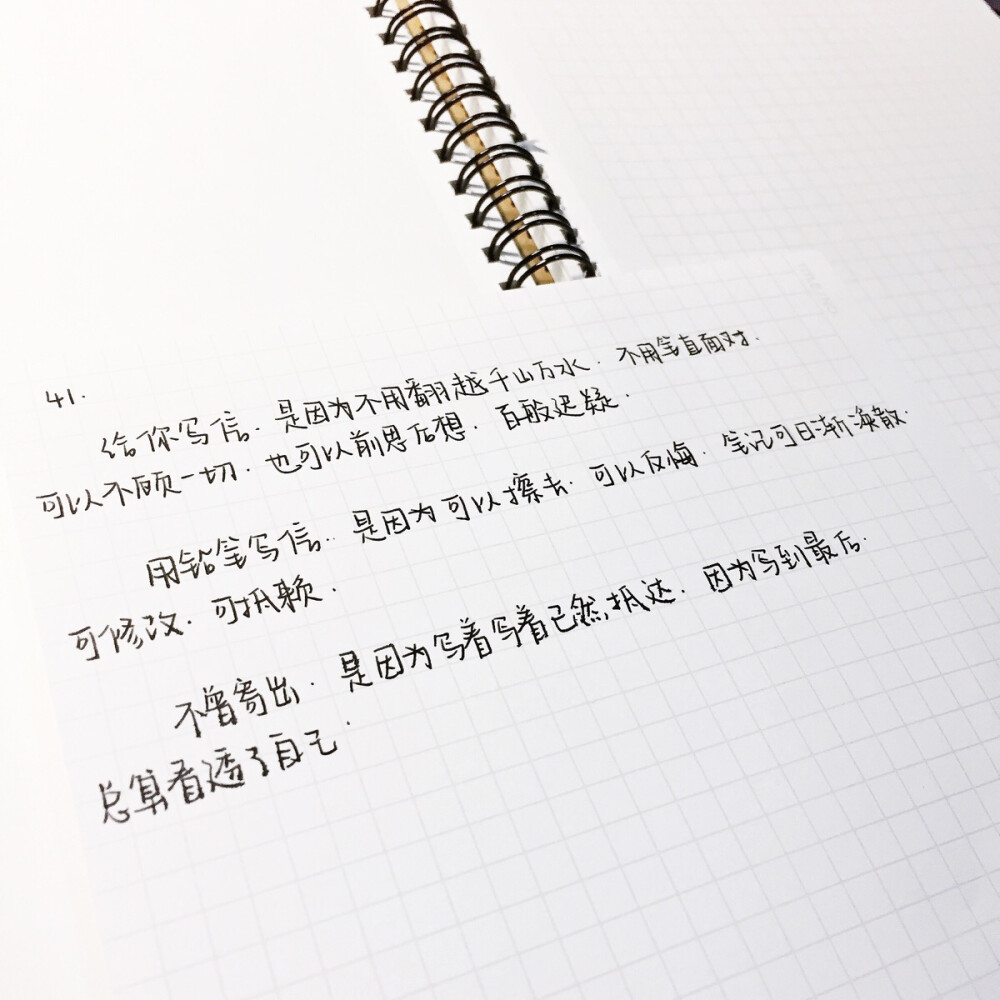 41.
给你写信.是因为不用翻越千山万水.不用笔直面对.
可以不顾一切.也可以前思后想.百般迟疑.
用铅笔写信.是因为可以擦去.可以反悔.笔记可日渐涣散.
可修改.可抵赖.
不曾寄出.是因为写着写着已然抵达.因为写到最后.
总算看透了自己.